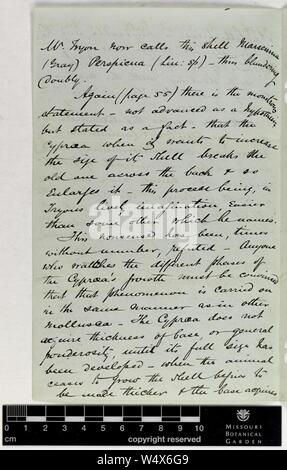 Mr. Tryon now calls this shell Marsenina
(Gray) Perspicua (Lin: sp) - thus blundering
doubly.
Again (page 55) there is the
statement - not advanced as a hypothesis
but stated as a fact - that the
Cypræa when it wants to increase
the size of its shell breaks the
old one across the back & so
enlarges it - this process being, in
Tryons lively imagination, easier
than some other which he names.
This nonsense has been, times
without number, refuted - Anyone
who watches the different phases of
the Cypræa's growth must be convinced
that that phenomenon is carried on
in the same manner as in other
mollusca - The Cypræa does not
acquire thickness of base, or general
ponderosity, until its full size has
been developed - when the animal
ceases to grow the shell begins to
be made thicker & the base acquires
0 1 2 3 4 5 6 7 8 9 10
cm
copyright reserved
MISSOURI
BOTANICAL
GARDEN
alamy
alamy
Image ID: W4X6G9
www.alamy.com